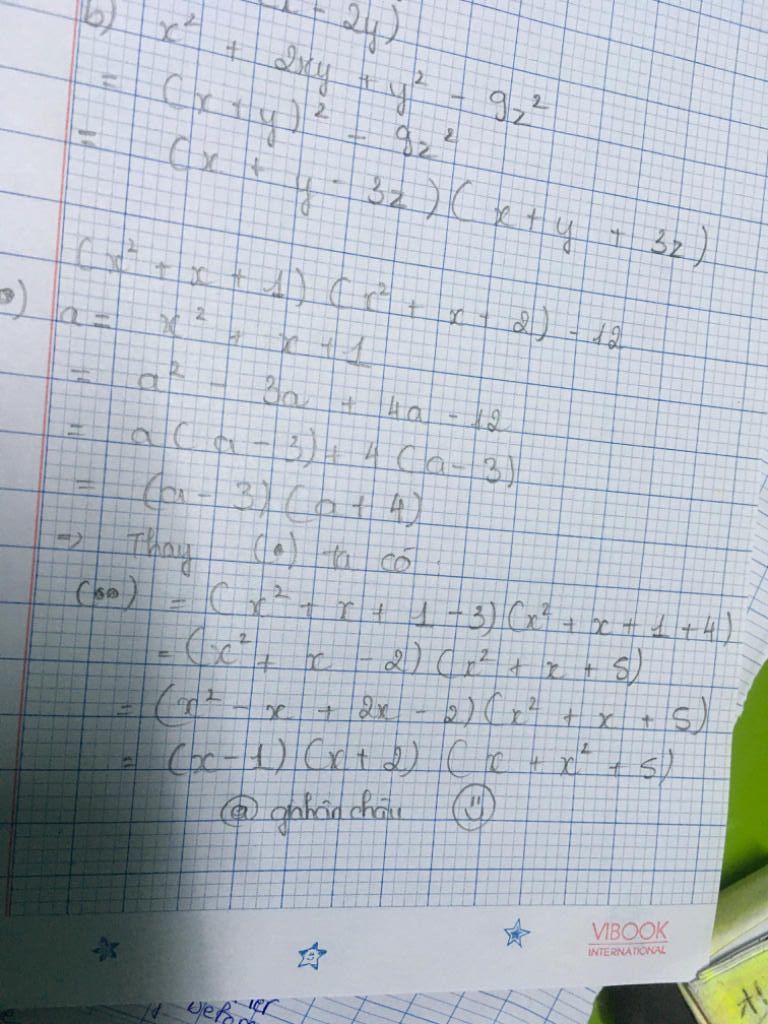 - 2y)
b) x² + 2xy + y² - 9z²
= (x + y)² - 9z²
= (x + y - 3z)(x + y + 3z)
(x² + x + 1)(x² + x + 2) - 12
a = x² + x + 1
= a² - 3a + 4a - 12
= a(a - 3) + 4(a - 3)
= (a - 3)(a + 4)
=> Thay (•) ta có.
(••) = (x² + x + 1 - 3)(x² + x + 1 + 4)
= (x² + x - 2)(x² + x + 5)
= (x² - x + 2x - 2)(x² + x + 5)
= (x - 1)(x + 2)(x + x² + 5)
VIBOOK
INTERNATIONAL